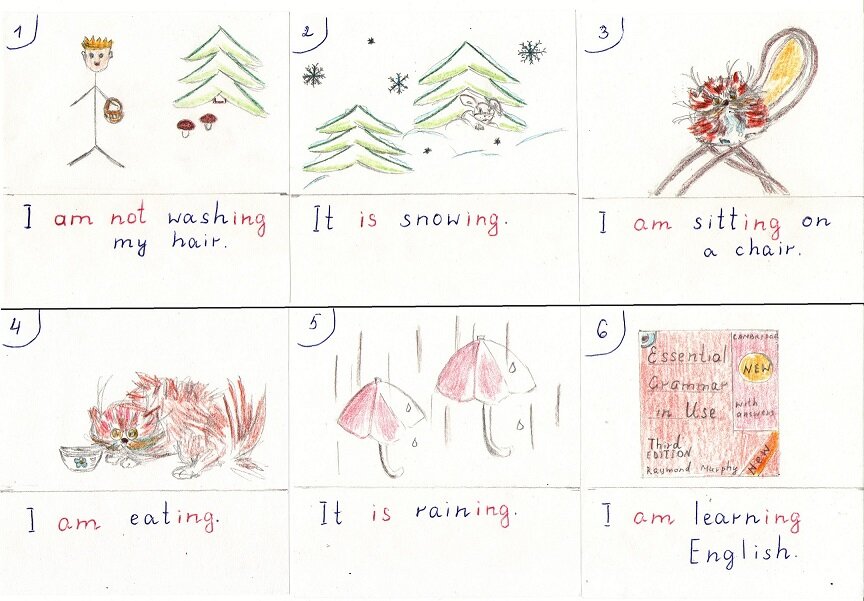 1
I am not washing
my hair.
2
It is snowing.
3
I am sitting on
a chair.
4
I am eating.
5
It is raining.
6
Essential
Grammar
in Use
Third
EDITION
Raymond Murphy
CAMBRIDGE
NEW
with
answers
New
I am learning
English.